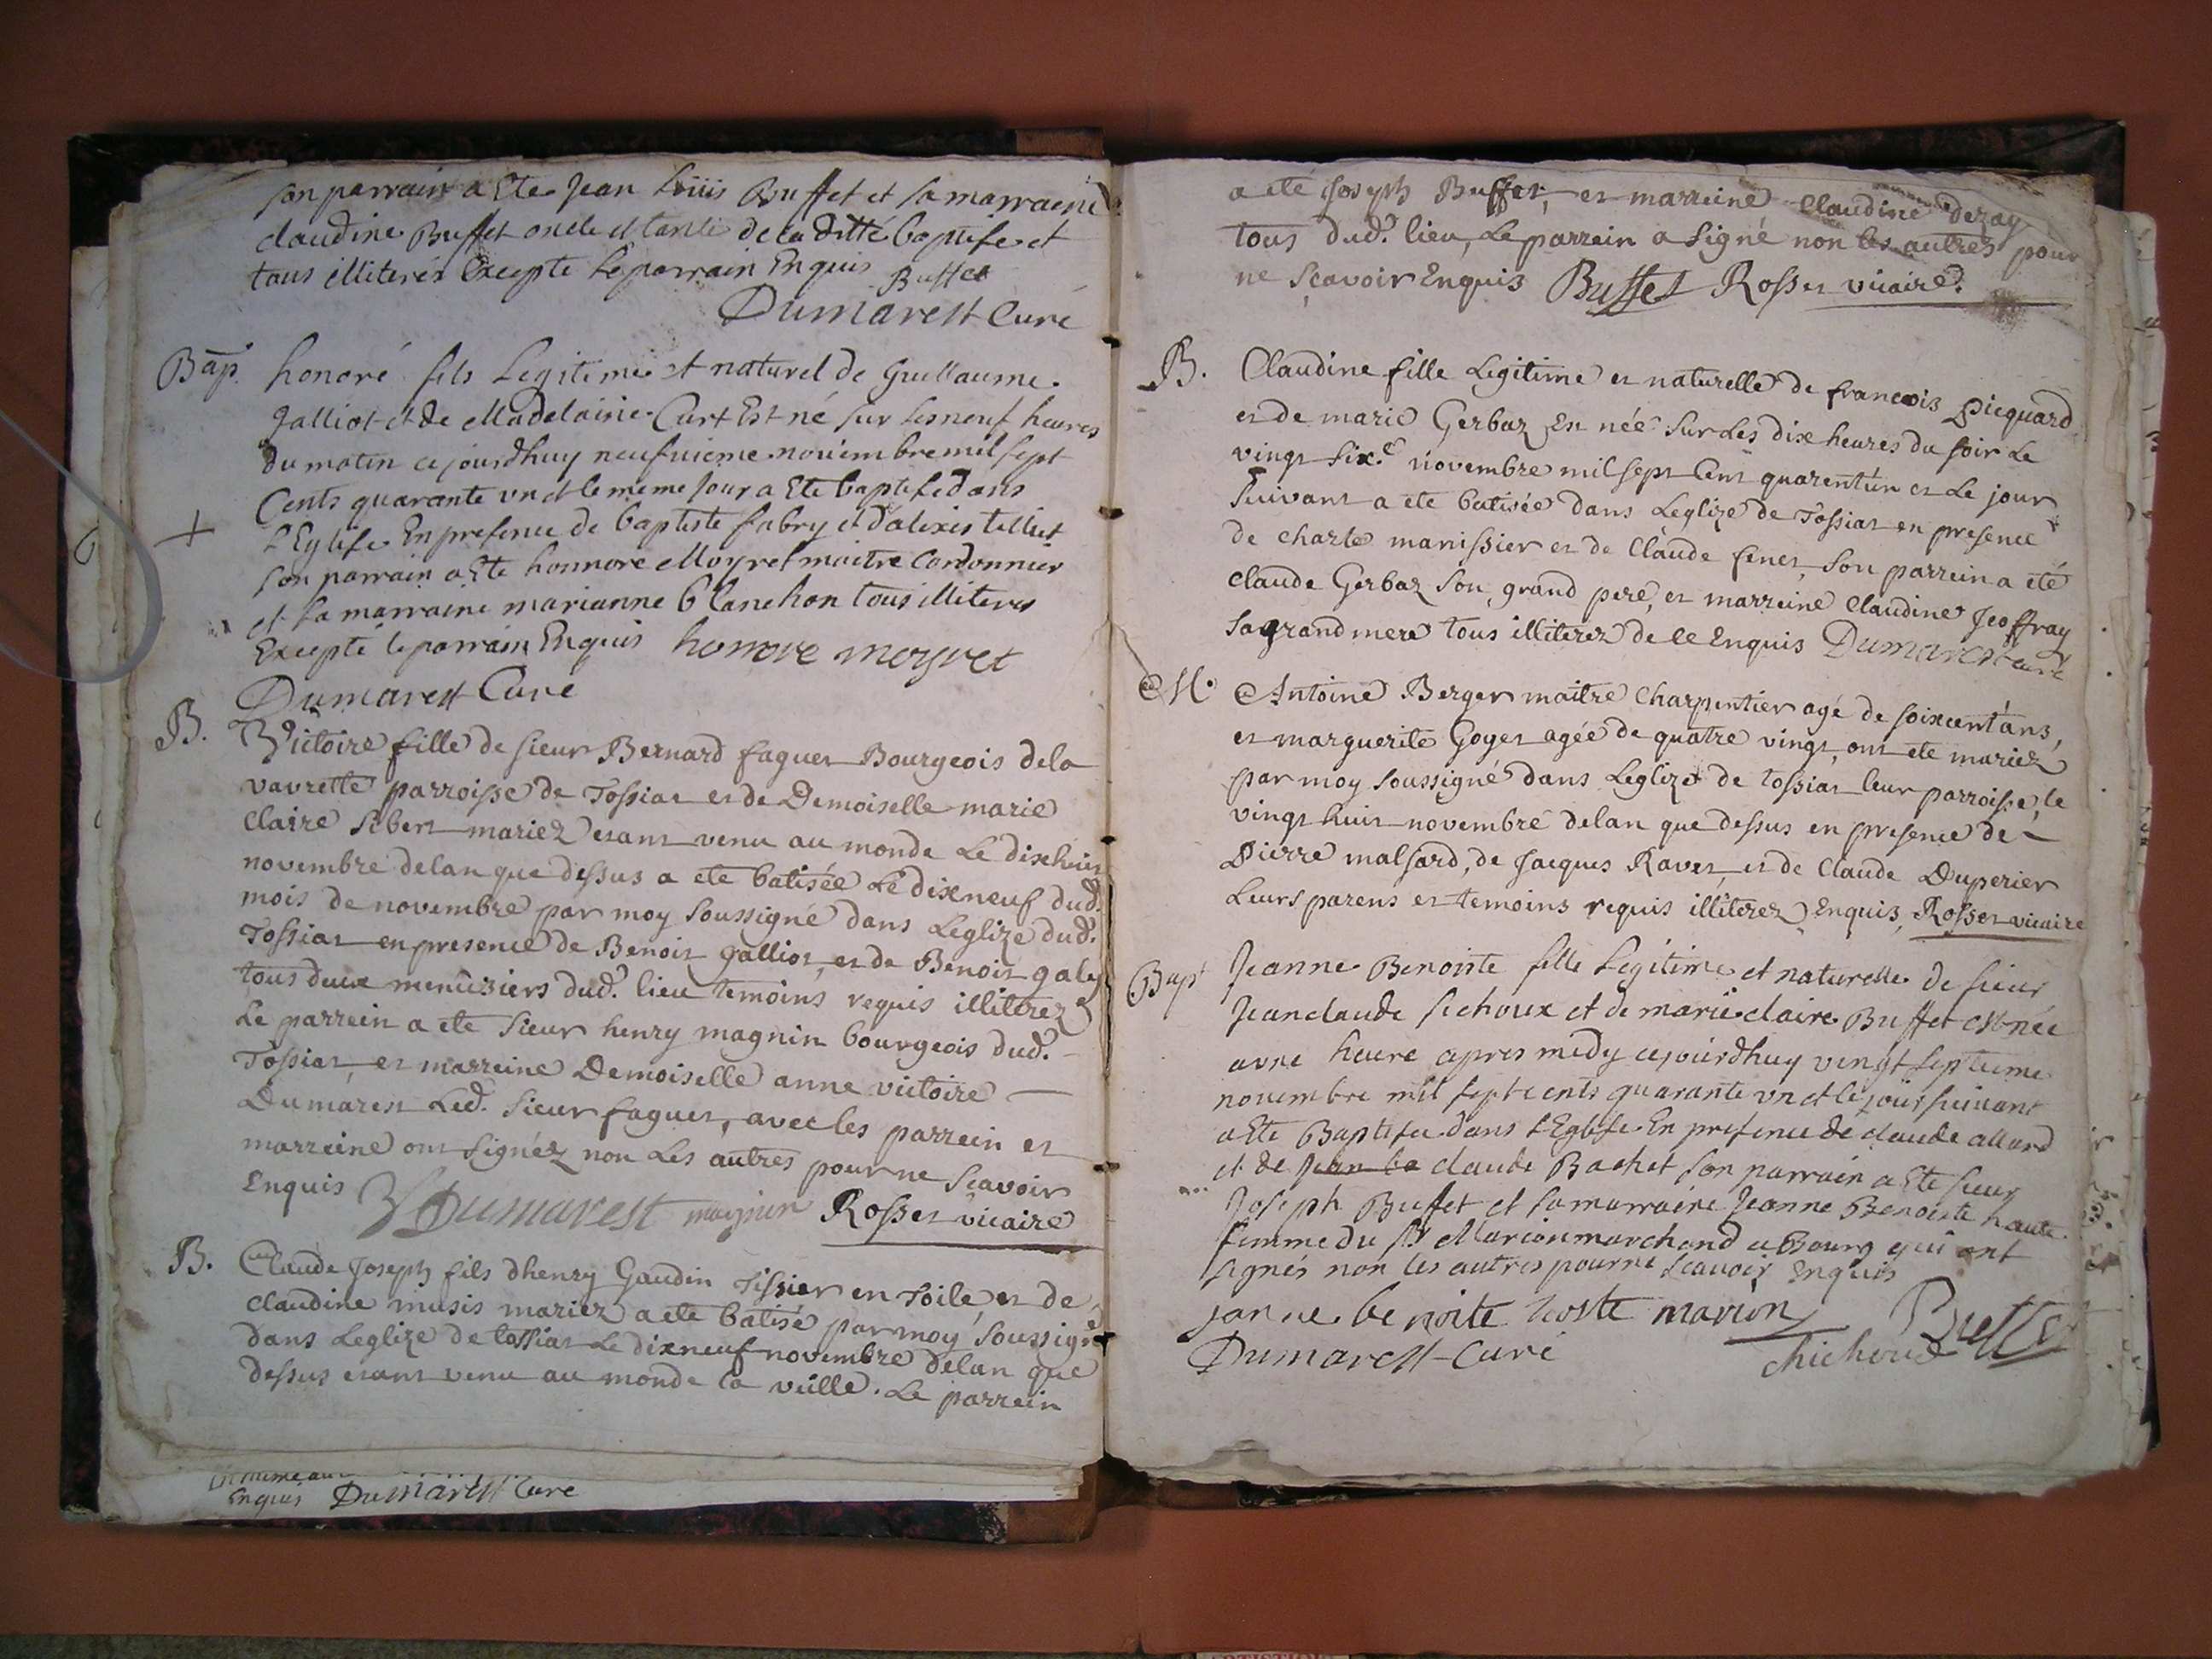 son parrain a Ete Jean Loüis Buffet et sa marraene
claudine Buffet oncle et tante de la ditte baptisée et
tous illiterés Excepte le parrain Enquis Buffet
Dumarest Curé
Bap. honoré fils Legitime et naturel de Guillaume
Jalliot et de Madelaine Curt Est né sur les neuf heures
du matin cejourdhuy neufvieme novembre mil sept
Cents quarante un et le meme jour a Ete baptisé dans
+ L'Eglise En presence de baptiste fabry et d'alexis telliet
son parrain a Ete honnoré Moyret maitre Cordonnier
et sa marraine marianne blanchon tous illiterés
Excepté le parrain Enquis honore moyret
Dumarest Curé
B. Victoire fille de sieur Bernard faguet Bourgeois de la
vavrette parroisse de Tossiat et de Demoiselle marie
Claire sibert mariez etant venu au monde Le dixhuit
novembre de lan que dessus a ete batisée Le dixneuf dud.
mois de novembre par moy soussigné dans Leglize dud.
Tossiat en presence de Benoit galliot, et de Benoit galey
tous deux menuiziers dud. lieu temoins requis illiterez
Le parrein a ete sieur henry magnin bourgeois dud.
Tossiat, et marreine Demoiselle anne victoire
Dumarest Led. sieur faguet, avec les parrein et
marreine ont signéz non Les autres pour ne scavoir
Enquis V Dumarest magnin Rosset vicaire
B. Claude Joseph fils dhenry Gaudin Tissier en Toile et de
claudine musis mariez a ete batisé par moy soussigné
dans Leglize de tossiat Le dixneuf novembre de lan que
dessus etant venu au monde la veille. Le parrein
Enquis Dumarest Curé
a eté Joseph Buffet, et marreine Claudine deray
tous dud. lieu, Le parrein a signé non les autres pour
ne scavoir Enquis Buffet Rosset vicaire.
B. Claudine fille Legitime et naturelle de francois Picquard
et de marie Gerbaz Est née sur Les dix heures du soir Le
vingt six.e novembre mil sept Cent quarentún et Le jour
suivant a ete batisée dans Leglize de Tossiat en presence
de charle manissier et de Claude fenet, son parrein a eté
claude Gerbaz son grand pere, et marreine Claudine Jeoffray
sa grand mere tous illiterez de ce Enquis Dumarest curé
M. Antoine Berger maitre Charpentier agé de soixent'ans,
et marguerite Goyet agée de quatre vingt, ont ete mariez
par moy soussigné dans Leglize de tossiat leur parroisse, le
vingt huit novembre de lan que dessus en presence de
Pierre malsard, de Jacques Ravet, et de Claude Duperier
Leurs parens et temoins requis illiterez Enquis, Rosset vicaire
Bapt Jeanne Benoiste fille Legitime et naturelle de sieur
Jean claude sichoux et de marie claire Buffet est née
a une heure apres medy cejourdhuy vingt septieme
novembre mil sept cents quarante un et le jour suivant
a Ete Baptisée dans l'Eglise En presence de claude allard
et de Jean ba claude Bachet son parrain a Ete sieur
Joseph Buffet et sa marraine Jeanne Benoiste haute
femme du sr Marion marchand a Bourg qui ont
signés non les autres pour ne scavoir Enquis
janne benoite hoste marion Buffet
Dumarest Curé chichoud